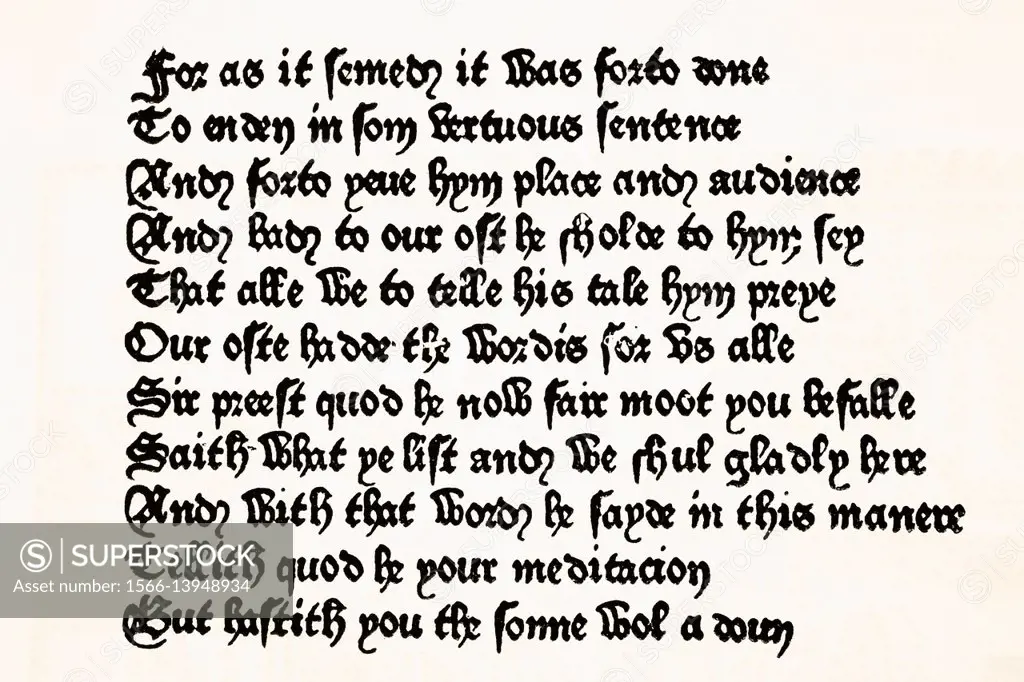 For as it semed it was forto done
To enden in som vertuous sentence
And forto yeue hym place and audience
And bad to our ost he sholde to hym sey
That alle we to telle his tale hym preye
Our oste hadde the wordis for vs alle
Sir preest quod he now fair moot you befalle
Saith what ye list and we shul gladly here
And with that word he sayde in this manere
Tellith quod he your meditacion
But hastith you the sonne wol a doun
SUPERSTOCK
Asset number: 1566-13948934